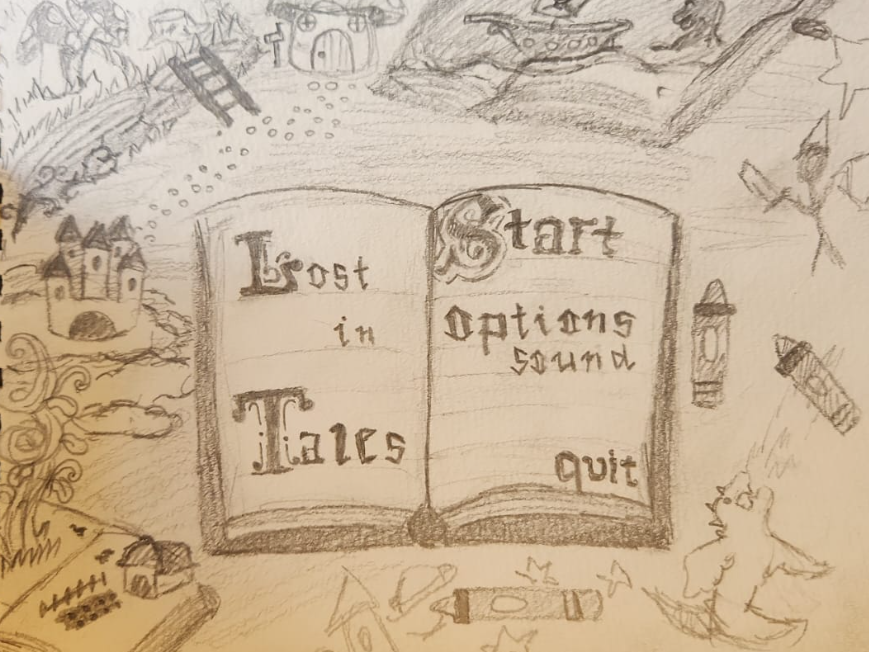 Lost
in
Tales
Start
options
sound
quit